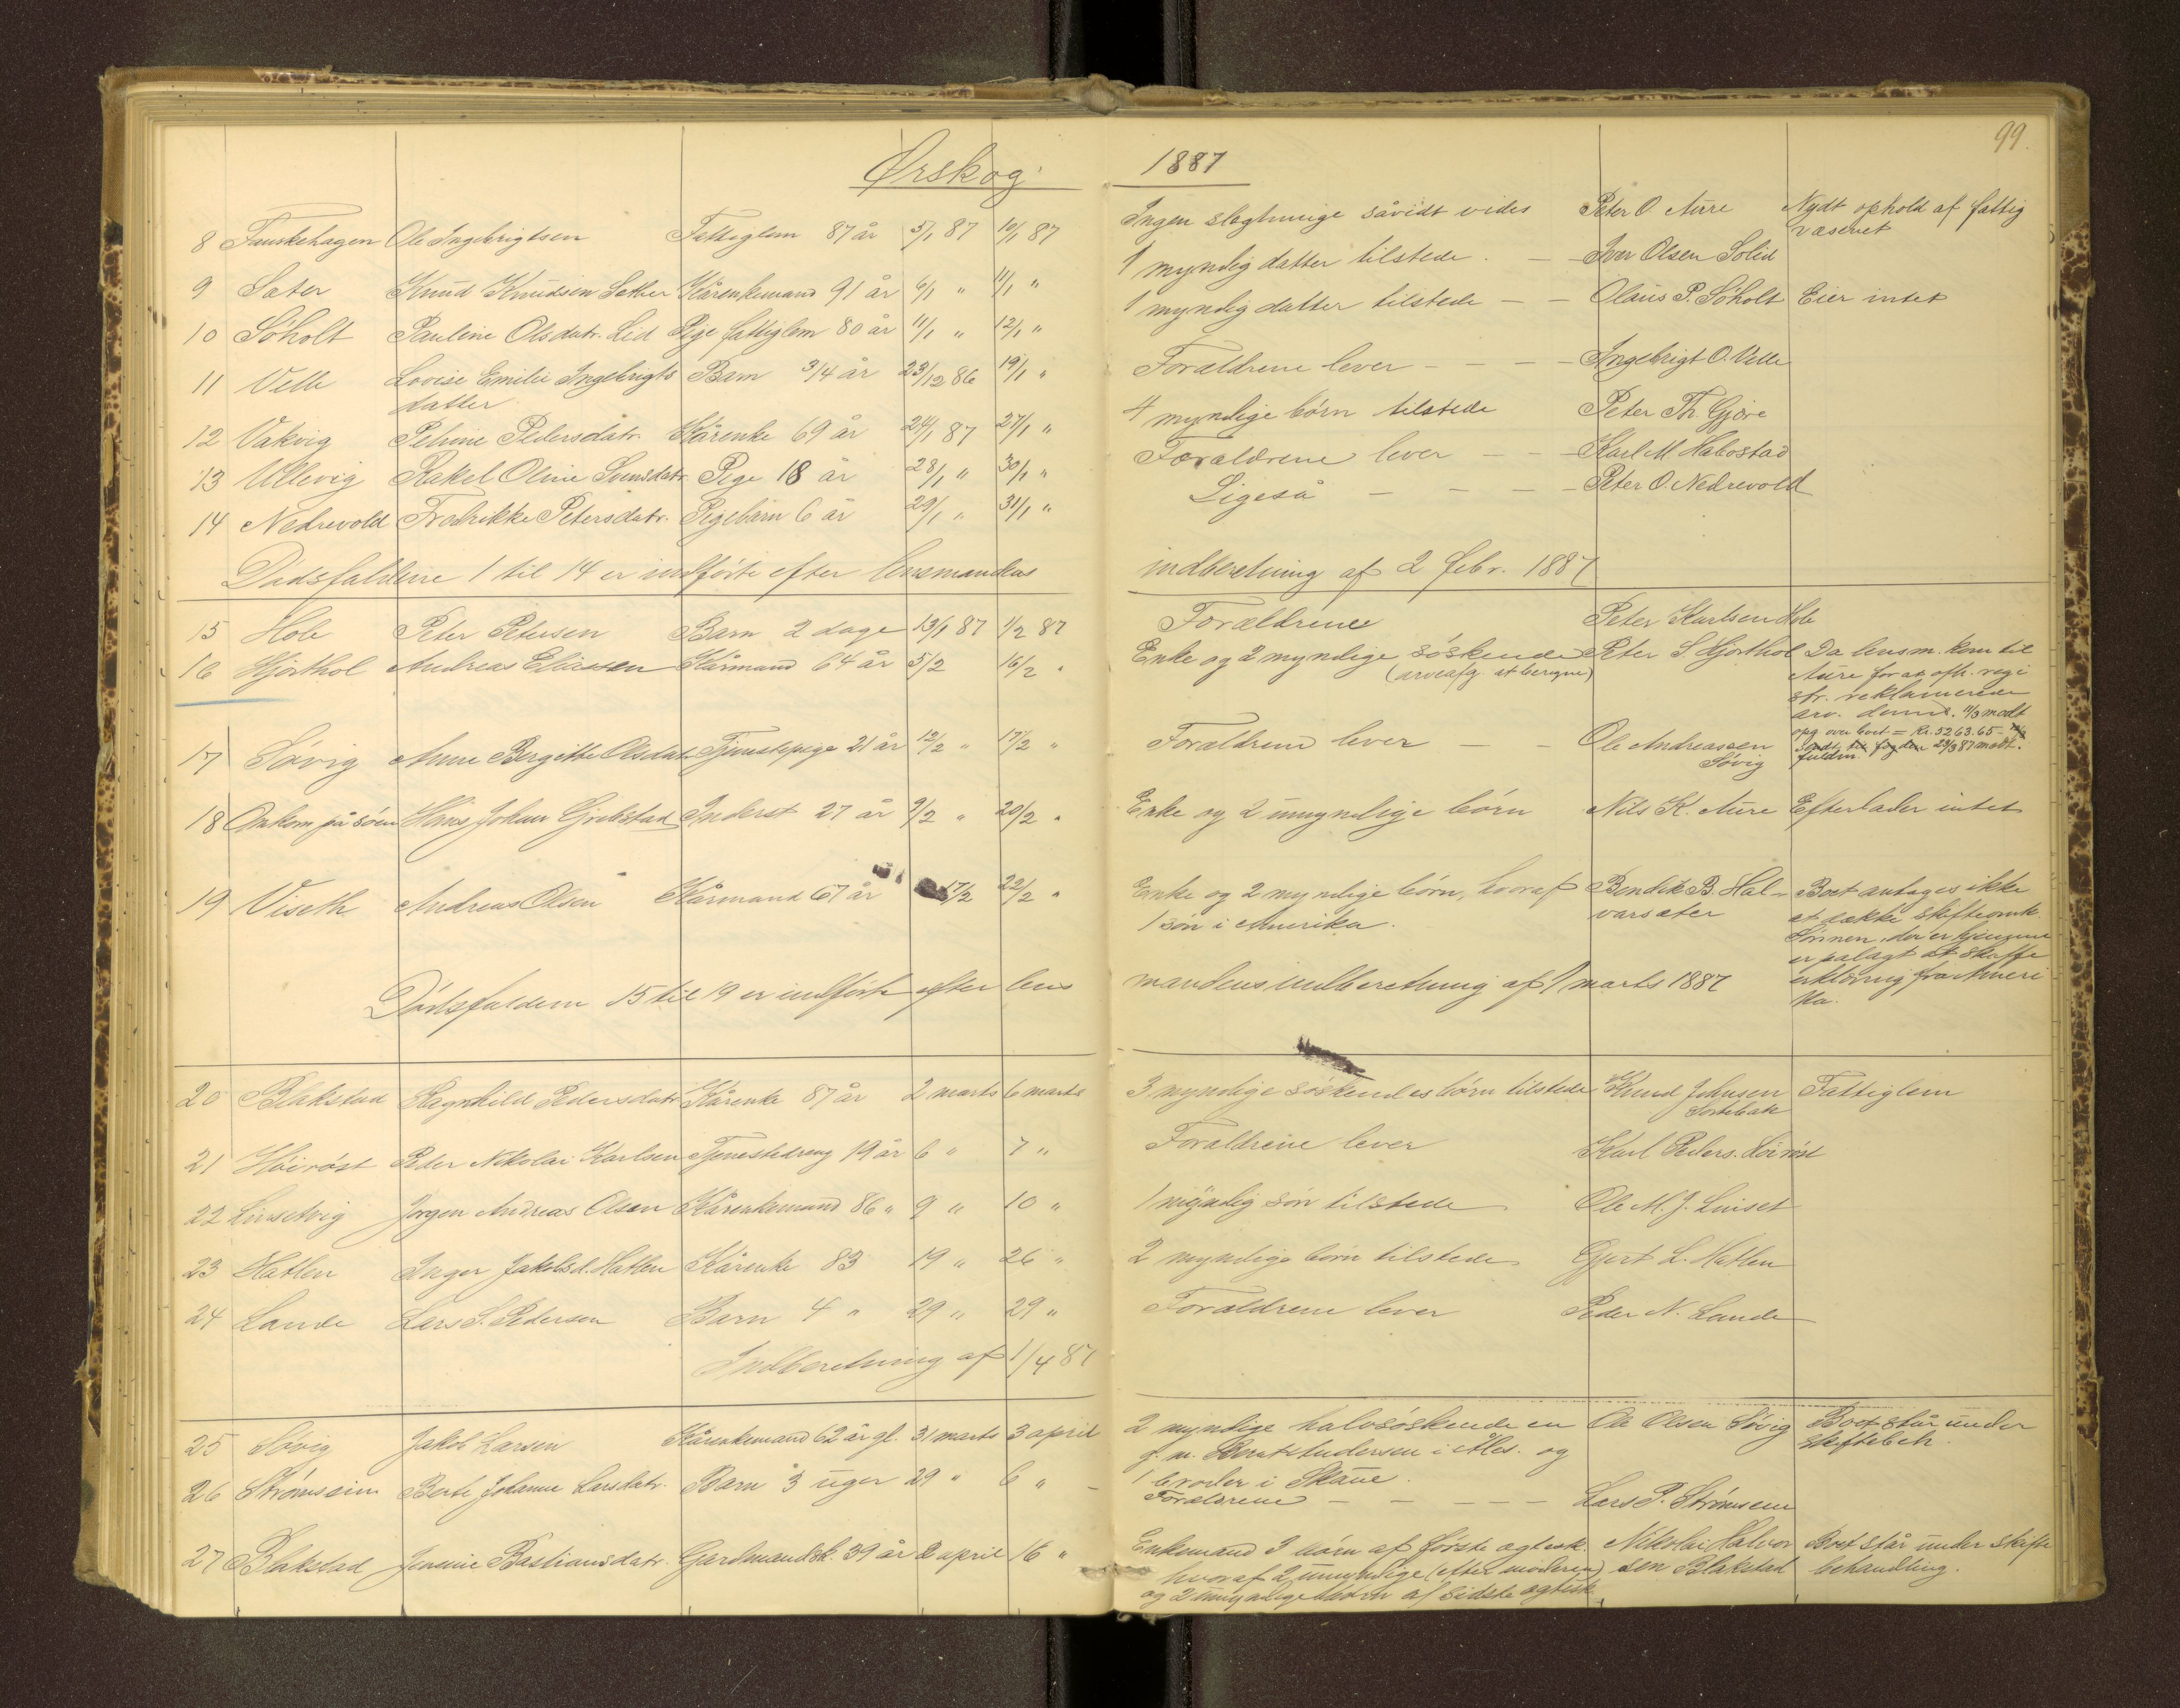 99.
Ørskog 1887
8 Fauskehagen Ole Ingebrigtsen Fattiglem 87 år 5/1 87 10/1 87 Ingen slegtninge såvidt vides Peter O. Aure Nydt ophold af fattig
væsenet
9 Sæter Knud Knudsen Sæther Kårenkemand 91 år 6/1 " 11/1 " 1 myndig datter tilstede. — Iver Olsen Solid
10 Søholt Pauline Olsdatr. Lid Pige fattiglem 80 år 11/1 " 12/1 " 1 myndig datter tilstede — — Olaus P. Søholt Eier intet
11 Velle Lovise Emilie Ingebrigts Barn 3/4 år 23/12 86 19/1 " Forældrene lever — — — Ingebrigt O. Velle
datter
12 Vakvig Petrine Pedersdatr. Kårenke 69 år 24/1 87 27/1 " 4 myndige børn tilstede Peter Th. Gjære
13 Ullevig Rakel Oline Svensdatr. Pige 18 år 28/1 " 30/1 " Forældrene lever — — Karl M Habostad
14 Nedrevold Fredrikke Petersdatr. Pigebarn 6 år 29/1 " 31/1 " Ligeså — — — — Peter O. Nedrevold
Dødsfaldene 1 til 14 er indførte efter lensmandens indberetning af 2 febr. 1887
15 Hole Peter Petersen Barn 2 dage 13/1 87 1/2 87 Forældrene Peter Karlsen Hole
16 Hjorthol Andreas Eliassen Kårmand 64 år 5/2 16/2 " Enke og 2 myndige søskende Peter S Hjorthol Da lensm. kom til
(arveafg. at beregne) Aure for at oph. regi
str. reklamerede
arv. denne. 11/3 modt
opg over boet = Kr. 5263.65 -
17 Søvig Anne Bergitte Olsdatr Tjenestepige 21 år 12/2 " 17/2 " Forældrene lever — — Ole Andreassen
Søvig
sendt til fogden 23/3 87 modt.
fuldm.
18 Ankom på søen Hans Johan Grebstad Inderst 27 år 9/2 " 20/2 " Enke og 2 umyndige børn Nils K. Aure Efterlader intet
19 Viseth Andreas Olsen Kårmand 67 år 17/2 22/2 " Enke og 2 myndige børn, hvoraf Bendik B. Hal- Boet antages ikke
1 søn i Amerika. varsæter at dække skifteomk.
Sønnen, der er hjemme
er pålagt at skaffe
erklæring fra Ameri
ka.
Dødsfaldene 15 til 19 er indførte efter lens mandens indberetning af 1 marts 1887
20 Blakstad Ragnhild Pedersdatr Kårenke 87 år 2 marts 6 marts 3 myndige søskendesbørn tilstede Knud Johnsen Fattiglem
21 Høirøst Peder Nikolai Karlsen Tjenestedreng 19 år 6 " 7 " Forældrene lever Karl Peders. Høirøst
22 Linsetvig Jørgen Andreas Olsen Kårenkemand 86 " 9 " 10 " 1 myndig søn tilstede Ole M. J. Linset
23 Hatlen Inger Jakobsd. Hatlen Kårenke 83 19 " 26 " 2 myndige børn tilstede Gjert L. Hatlen
24 Lande Lars S. Pedersen Barn 4 " 29 " 29 " Forældrene lever Peder N. Lande
Indberetning af 1/4 87
25 Søvig Jakob Larsen Kårenkemand 62 år gl. 31 marts 3 april 2 myndige halvsøskende en Ole Olsen Søvig Boet står under
g. m. Bernt Andersen i Åles. og skiftebeh.
1 broder i Skaue.
26 Strømseim Berte Johanne Larsdatr. Barn 3 uger 29 " 6 " — Forældrene — — — — Lars P. Strømseim
27 Blakstad Jensine Bastiansdatr. Gårdmandsk. 39 år 2 april 16 " Enkemand 3 børn af første ægtesk. Nikolai Halvor Boet står under skifte
hvoraf 2 umyndige (efter moderen) sen Blakstad behandling.
og 2 umyndige børn af sidste ægtesk.